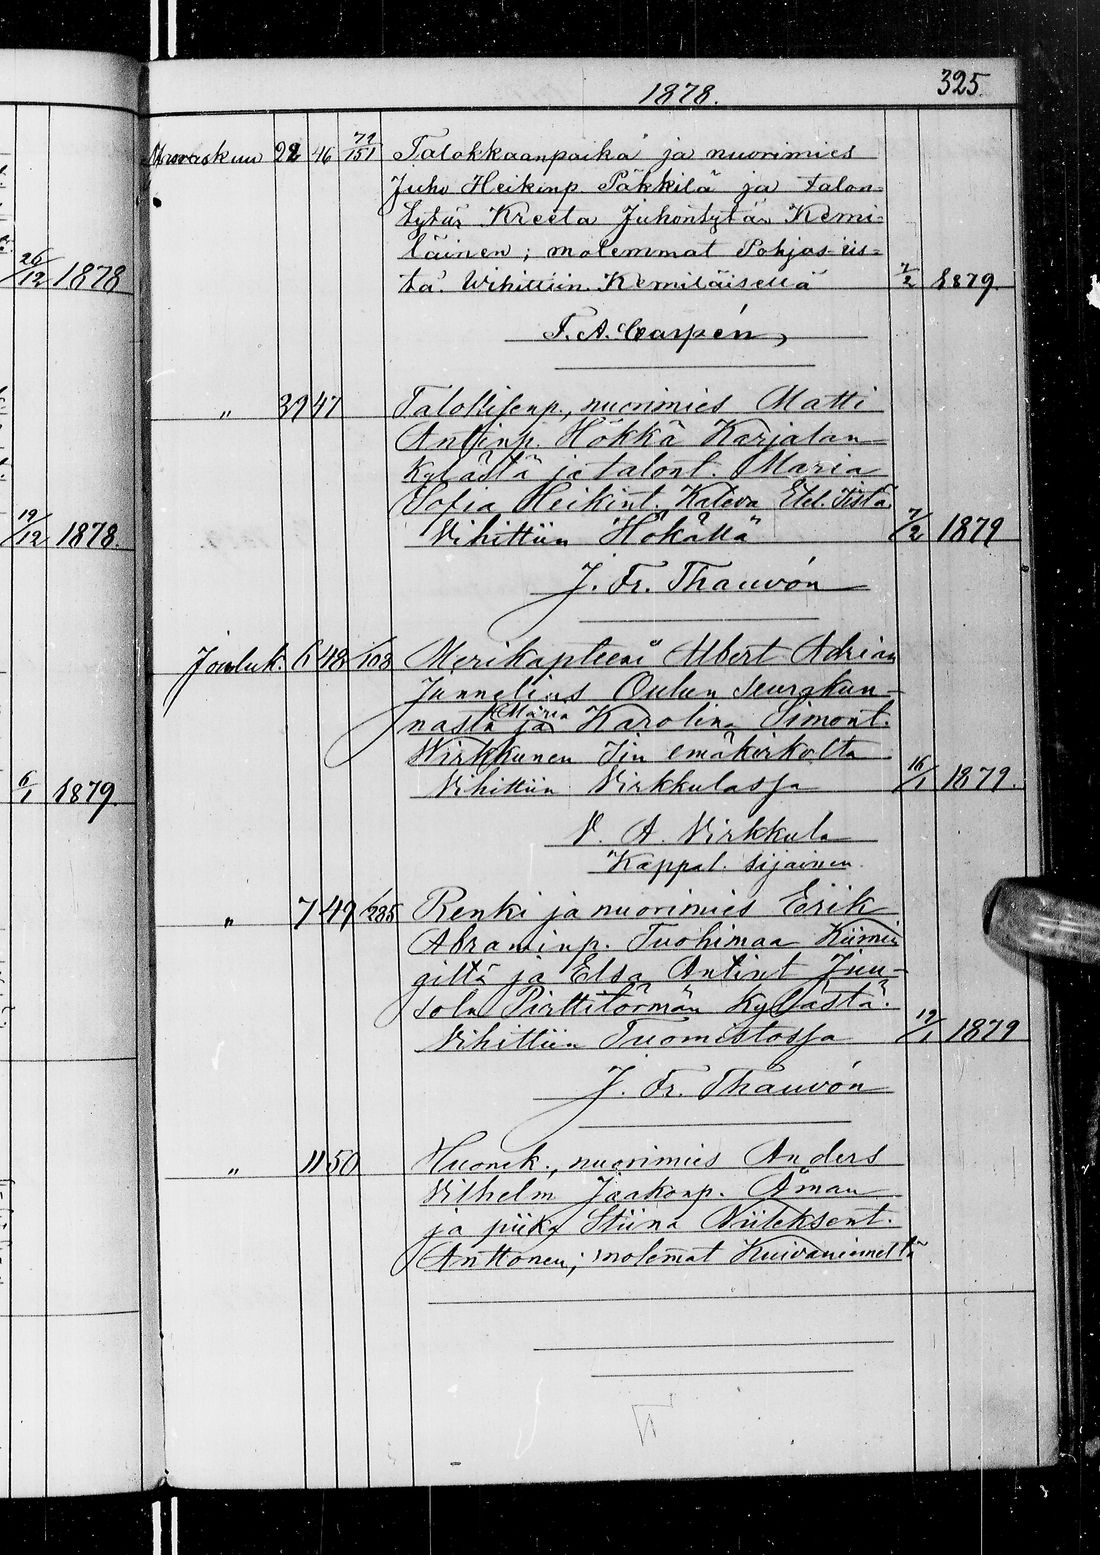 325
1878.
Marraskuu 22 46 79/151 Talokkaanpoika ja nuorimies
Juho Heikinp Päkkilä ja talon-
tytär Kreeta Juhontytär Kemi-
läinen; molemmat Pohjos-iis-
tä. Wihittiin Kemiläisellä 7/2 1879.
F. A. Carpén,
26/12 1878
„ 29 47 Talollisenp., nuorimies Matti
Antinp. Hökkä Karjalan-
kylästä ja talont. Maria
Sofia Heikint. Kaleva Etel. Iistä
Vihittiin Hökällä 7/2 1879
J. Fr. Thauvón
19/12 1878.
Jouluk. 6 48 /108 Merikapteeni Albert Adrian
Junnelius Oulun seurakun-
nasta ja Maria Karolina Simont.
Wirkkunen Iin emäkirkolta
Vihittiin Virkkulassa 16/1 1879.
V. A. Virkkula
Kappal. sijainen.
6/1 1879.
„ 7 49 /285 Renki ja nuorimies Erik
Abraminp. Tuohimaa Kiimin
giltä ja Elsa Antint Juu-
sola Pirttitörmän kylästä.
Vihittiin Tuomistossa 19/1 1879
J. Fr. Thauvón
„ 11 50 Huonek., nuorimies Anders
Vilhelm Jaakonp. Åman
ja piika Stiina Niileksent.
Anttonen; molemat Kuivaniemeltä